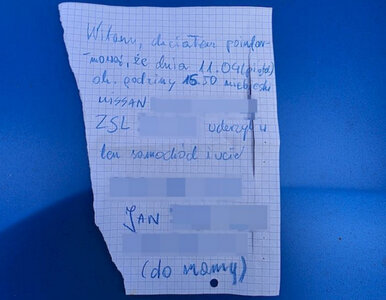 Witam, chciałem poinfor-
mować, że dnia 11.04 (piątek)
ok. godziny 15.50 niebieski
NISSAN
ZSL uderzył w
ten samochód i uciekł
JAN
(do mamy)